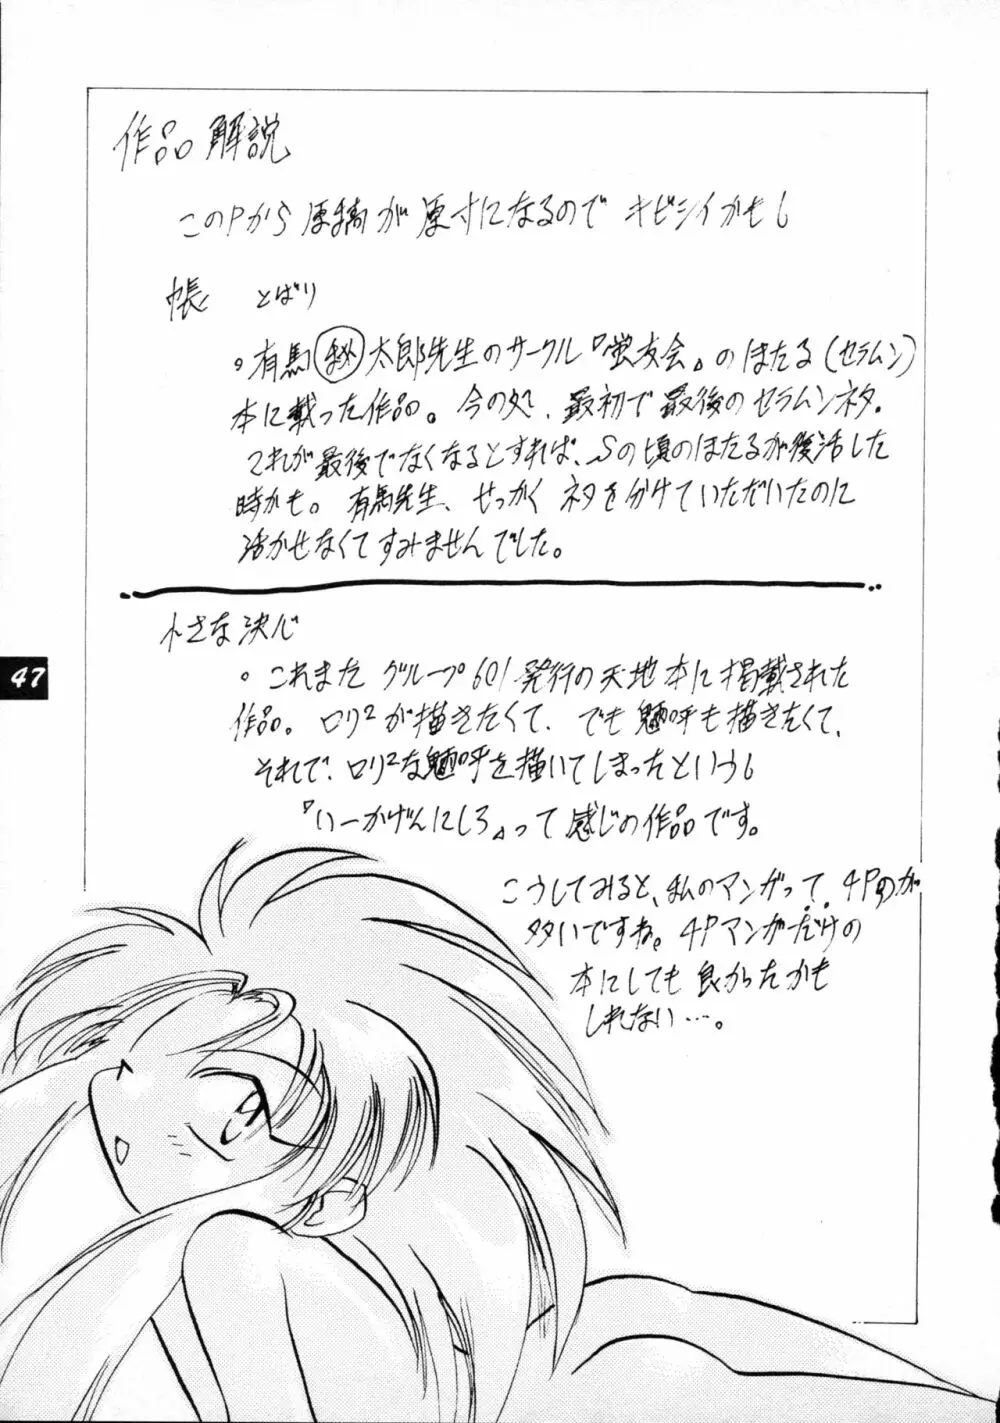 作品解説
このPから原稿が原寸になるのでキビシイかも
帳 とばり
。有馬㊙太郎先生のサークル『蛍友会』のほたる(セラムン)
本に載った作品。今の処、最初で最後のセラムンネタ。
これが最後でなくなるとすれば、Sの頃のほたるが復活した
時かも。有馬先生、せっかくネタを分けていただいたのに
活かせなくてすみませんでした。
小さな決心
。これまたグループ601発行の天地本に掲載された
作品。ロリ²が描きたくて、でも魎呼も描きたくて、
それで、ロリ²な魎呼を描いてしまったという。
『いーかげんにしろ』って感じの作品です。
こうしてみると、私のマンガって、4Pのが
多いですね。4Pマンガだけの
本にしても良かったかも
しれない…。
47